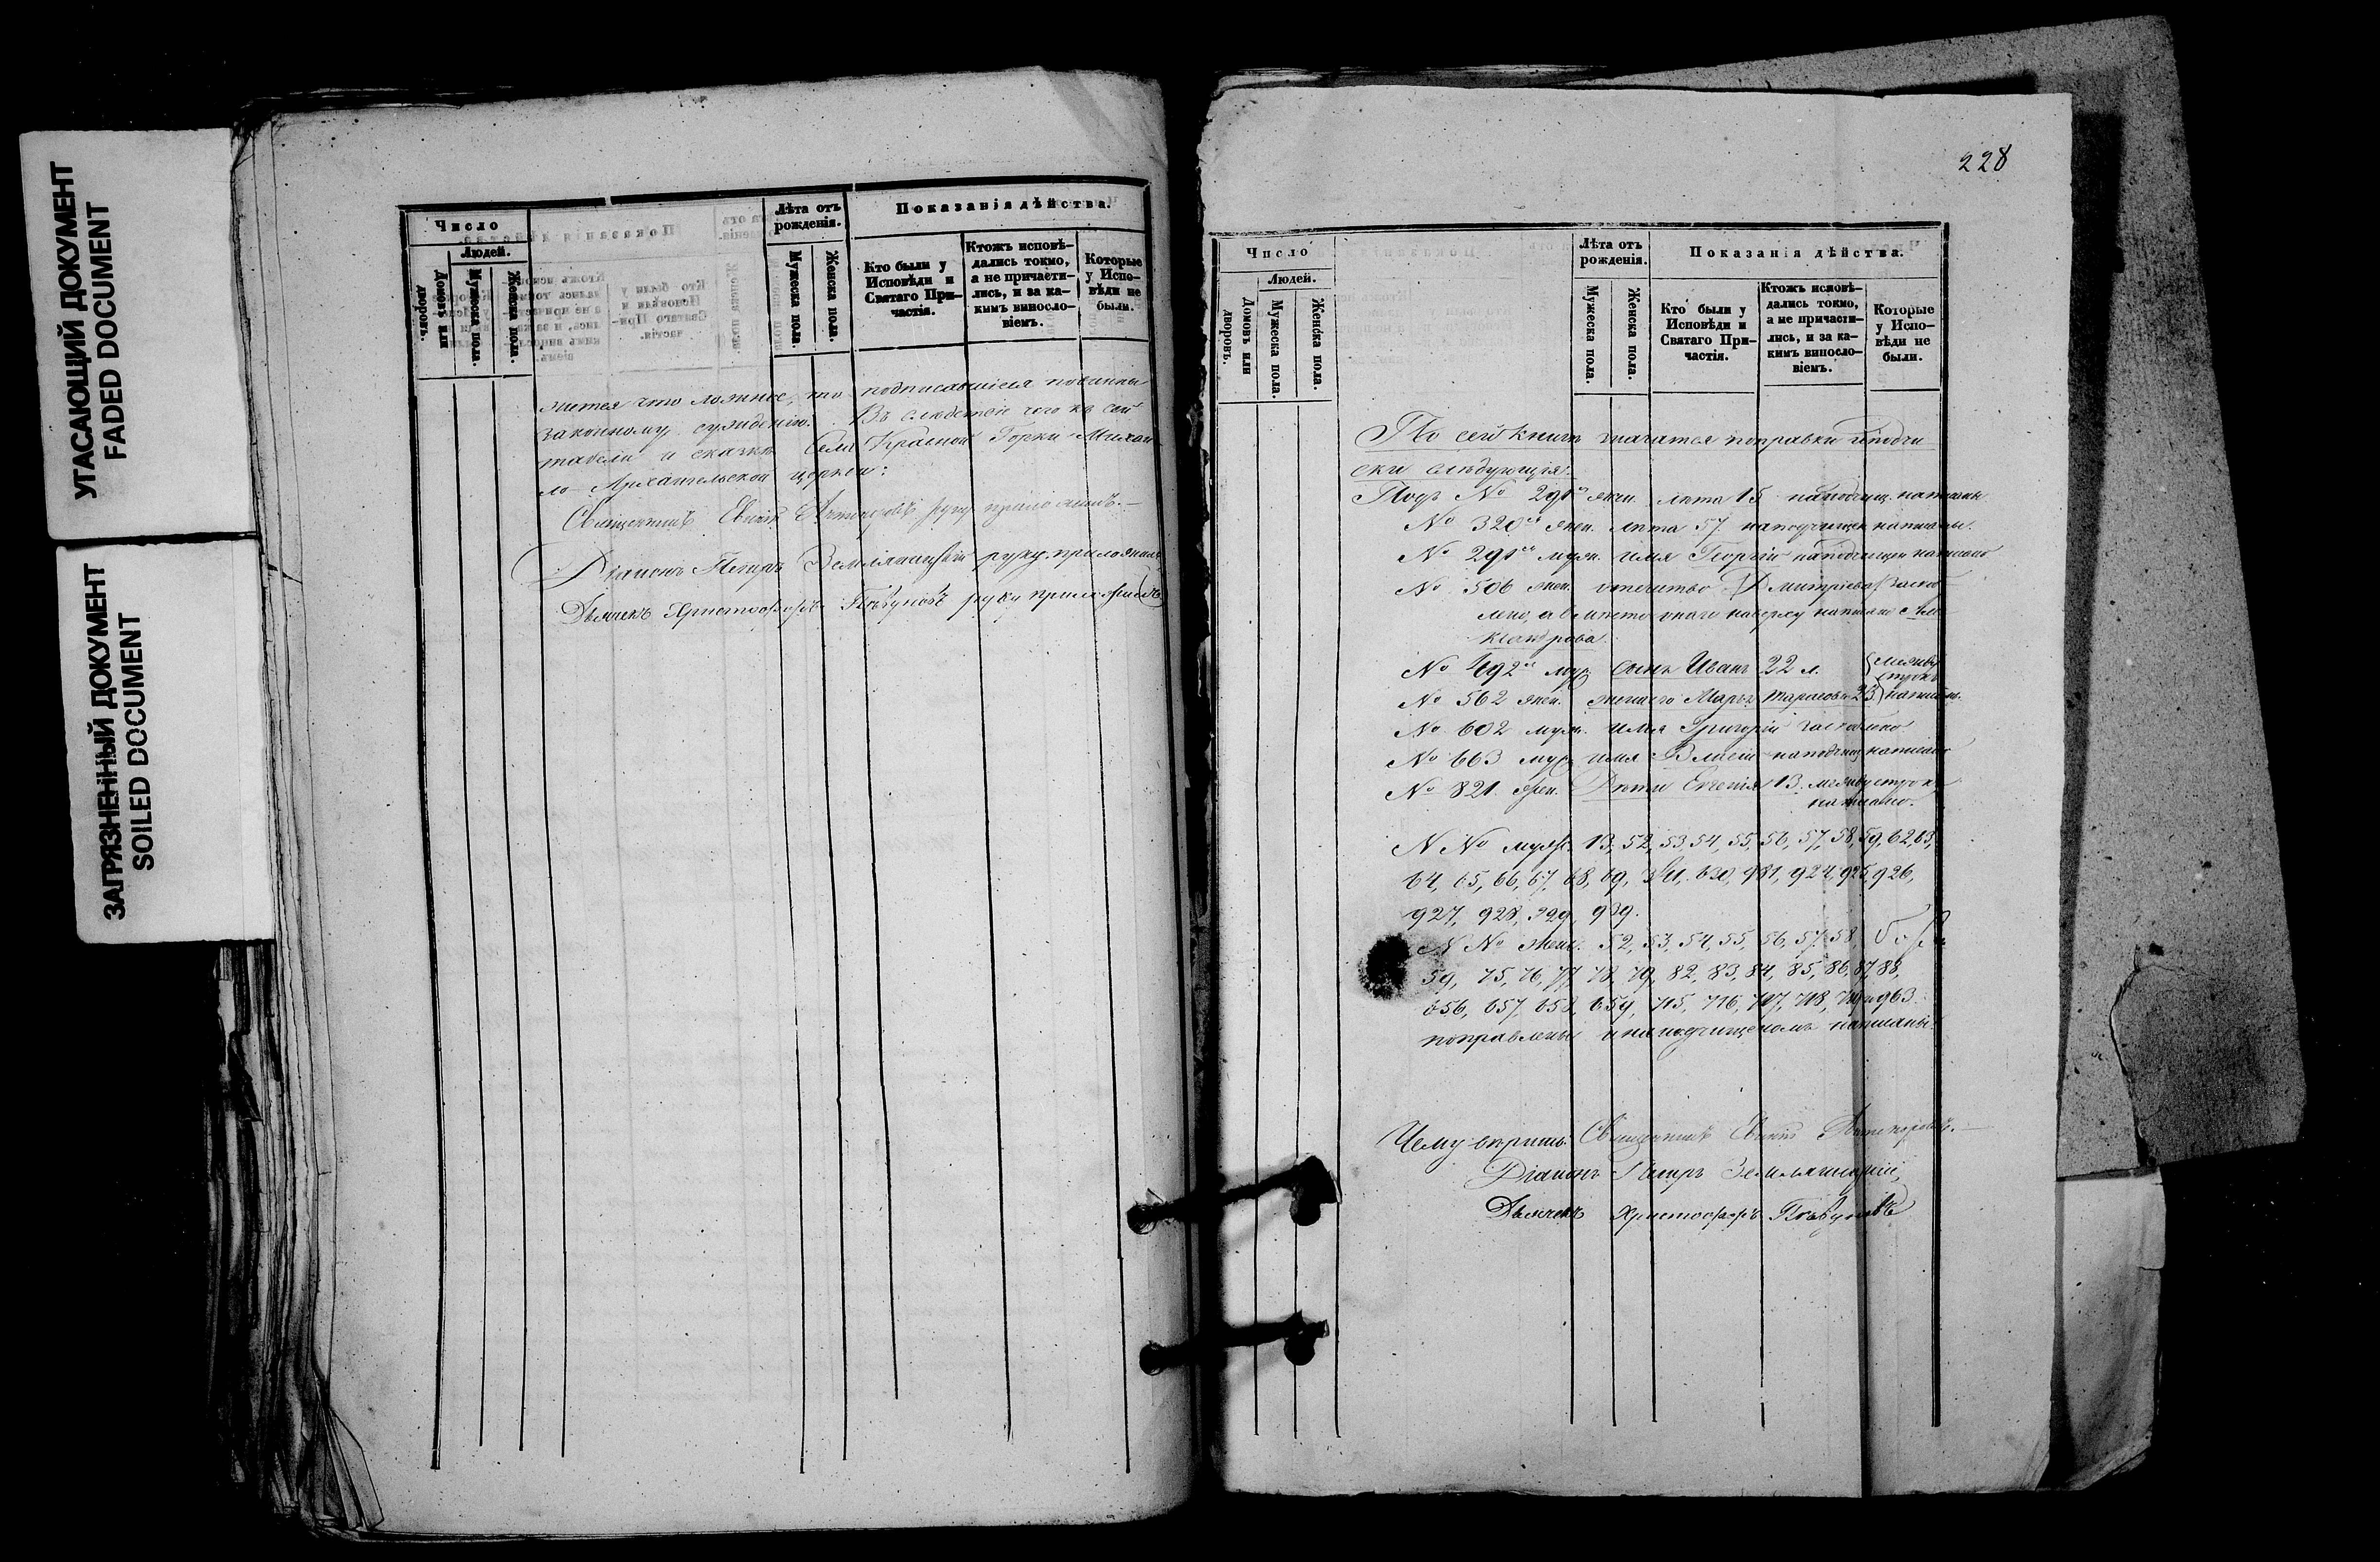 УГАСАЮЩИЙ ДОКУМЕНТ
FADED DOCUMENT
ЗАГРЯЗНЕННЫЙ ДОКУМЕНТ
SOILED DOCUMENT
Число
Людей.
Домовъ или дворовъ.
Мужеска пола.
Женска пола.
Лѣта отъ рожденія.
Мужеска пола.
Женска пола.
Показанія дѣйства.
Кто были у Исповѣди и Святаго Причастія.
Ктожъ исповѣдались токмо, а не причастились, и за какимъ винословіемъ.
Которые у Исповѣди не были.
жется что ложное, то подписавшіеся повинны
законному сужденію. Въ слѣдствіе чего къ сей
табели и сказкѣ Села Красной Горки Михаи
ло-Архангельской церкви:
Священникъ руку приложилъ.
Діаконъ Петръ руку приложилъ
Дьячекъ Христофоръ руку приложилъ
228
Число
Людей.
Домовъ или дворовъ.
Мужеска пола.
Женска пола.
Лѣта отъ рожденія.
Мужеска пола.
Женска пола.
Показанія дѣйства.
Кто были у Исповѣди и Святаго Причастія.
Ктожъ исповѣдались токмо, а не причастились, и за какимъ винословіемъ.
Которые у Исповѣди не были.
По сей книгѣ значатся поправки и подчи
ски слѣдующія:
Подъ № 291 жен. лѣта 15 написаны
№ 320 жен. лѣта 57 написаны.
№ 291 муж. имя Георгій написано
№ 506 жен. отечество Дмитріева
лено, а вмѣсто онаго наверху написано Але
ксандрова.
№ 492 муж. сынъ Иванъ 22 л. между строкъ
№ 562 жен. жена его Марья Тарасова 23 написано.
№ 602 муж. имя Григорій
№ 663 муж. имя Власій написано
№ 821. жен. Дѣти Евгенія 13. между строкъ
написано.
N № муж. 13, 52, 53, 54, 55, 56, 57, 58, 59, 62, 63,
64, 65, 66, 67, 68, 69, 924, 925, 926,
927, 928, 929, 939.
N № жен. 52, 53, 54, 55, 56, 57, 58,
59, 75, 76, 77, 78, 79, 82, 83, 84, 85, 86, 87, 88,
656, 657, 658, 659, 715, 716, 717, 718, 963.
поправлены и на подчищеномъ написаны.
Чему вѣримъ: Священникъ
Діаконъ Петръ
Дьячекъ Христофоръ